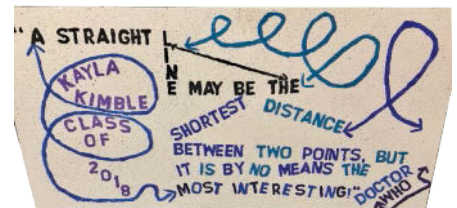 "A STRAIGHT LINE MAY BE THE
SHORTEST DISTANCE
BETWEEN TWO POINTS, BUT
IT IS BY NO MEANS THE
MOST INTERESTING!"
DOCTOR WHO
KAYLA
KIMBLE
CLASS
OF
2018